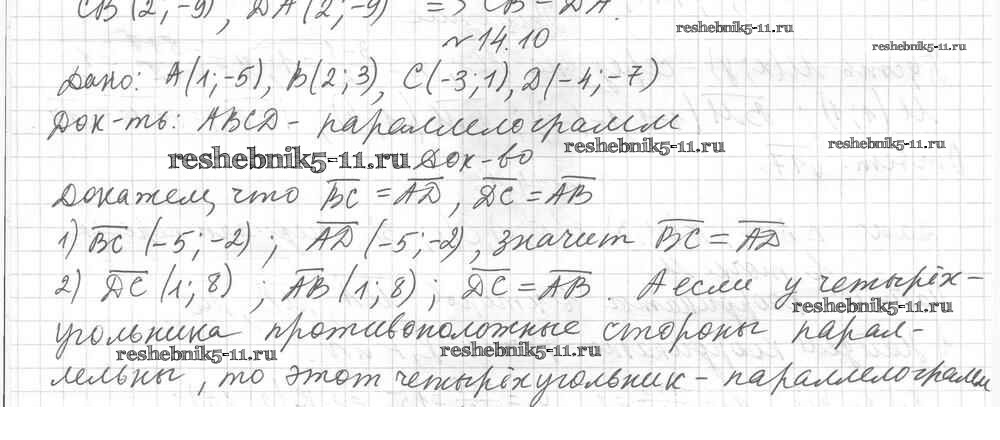 CB (2; -9), DA (2; -9) => CB = DA.
reshebnik5-11.ru
№14.10
reshebnik5-11.ru
Дано: A(1;-5), B(2;3), C(-3;1), D(-4;-7)
Док-ть: ABCD - параллелограмм
reshebnik5-11.ru Док-во reshebnik5-11.ru reshebnik5-11.ru
Докажем, что BC = AD, DC = AB
1) BC (-5;-2) ; AD (-5;-2), значит BC = AD
2) DC (1; 8) ; AB (1; 8) ; DC = AB . А если у четырёх-
reshebnik5-11.ru
угольника противоположные стороны парал-
reshebnik5-11.ru reshebnik5-11.ru
лельны, то этот четырёхугольник - параллелограмм